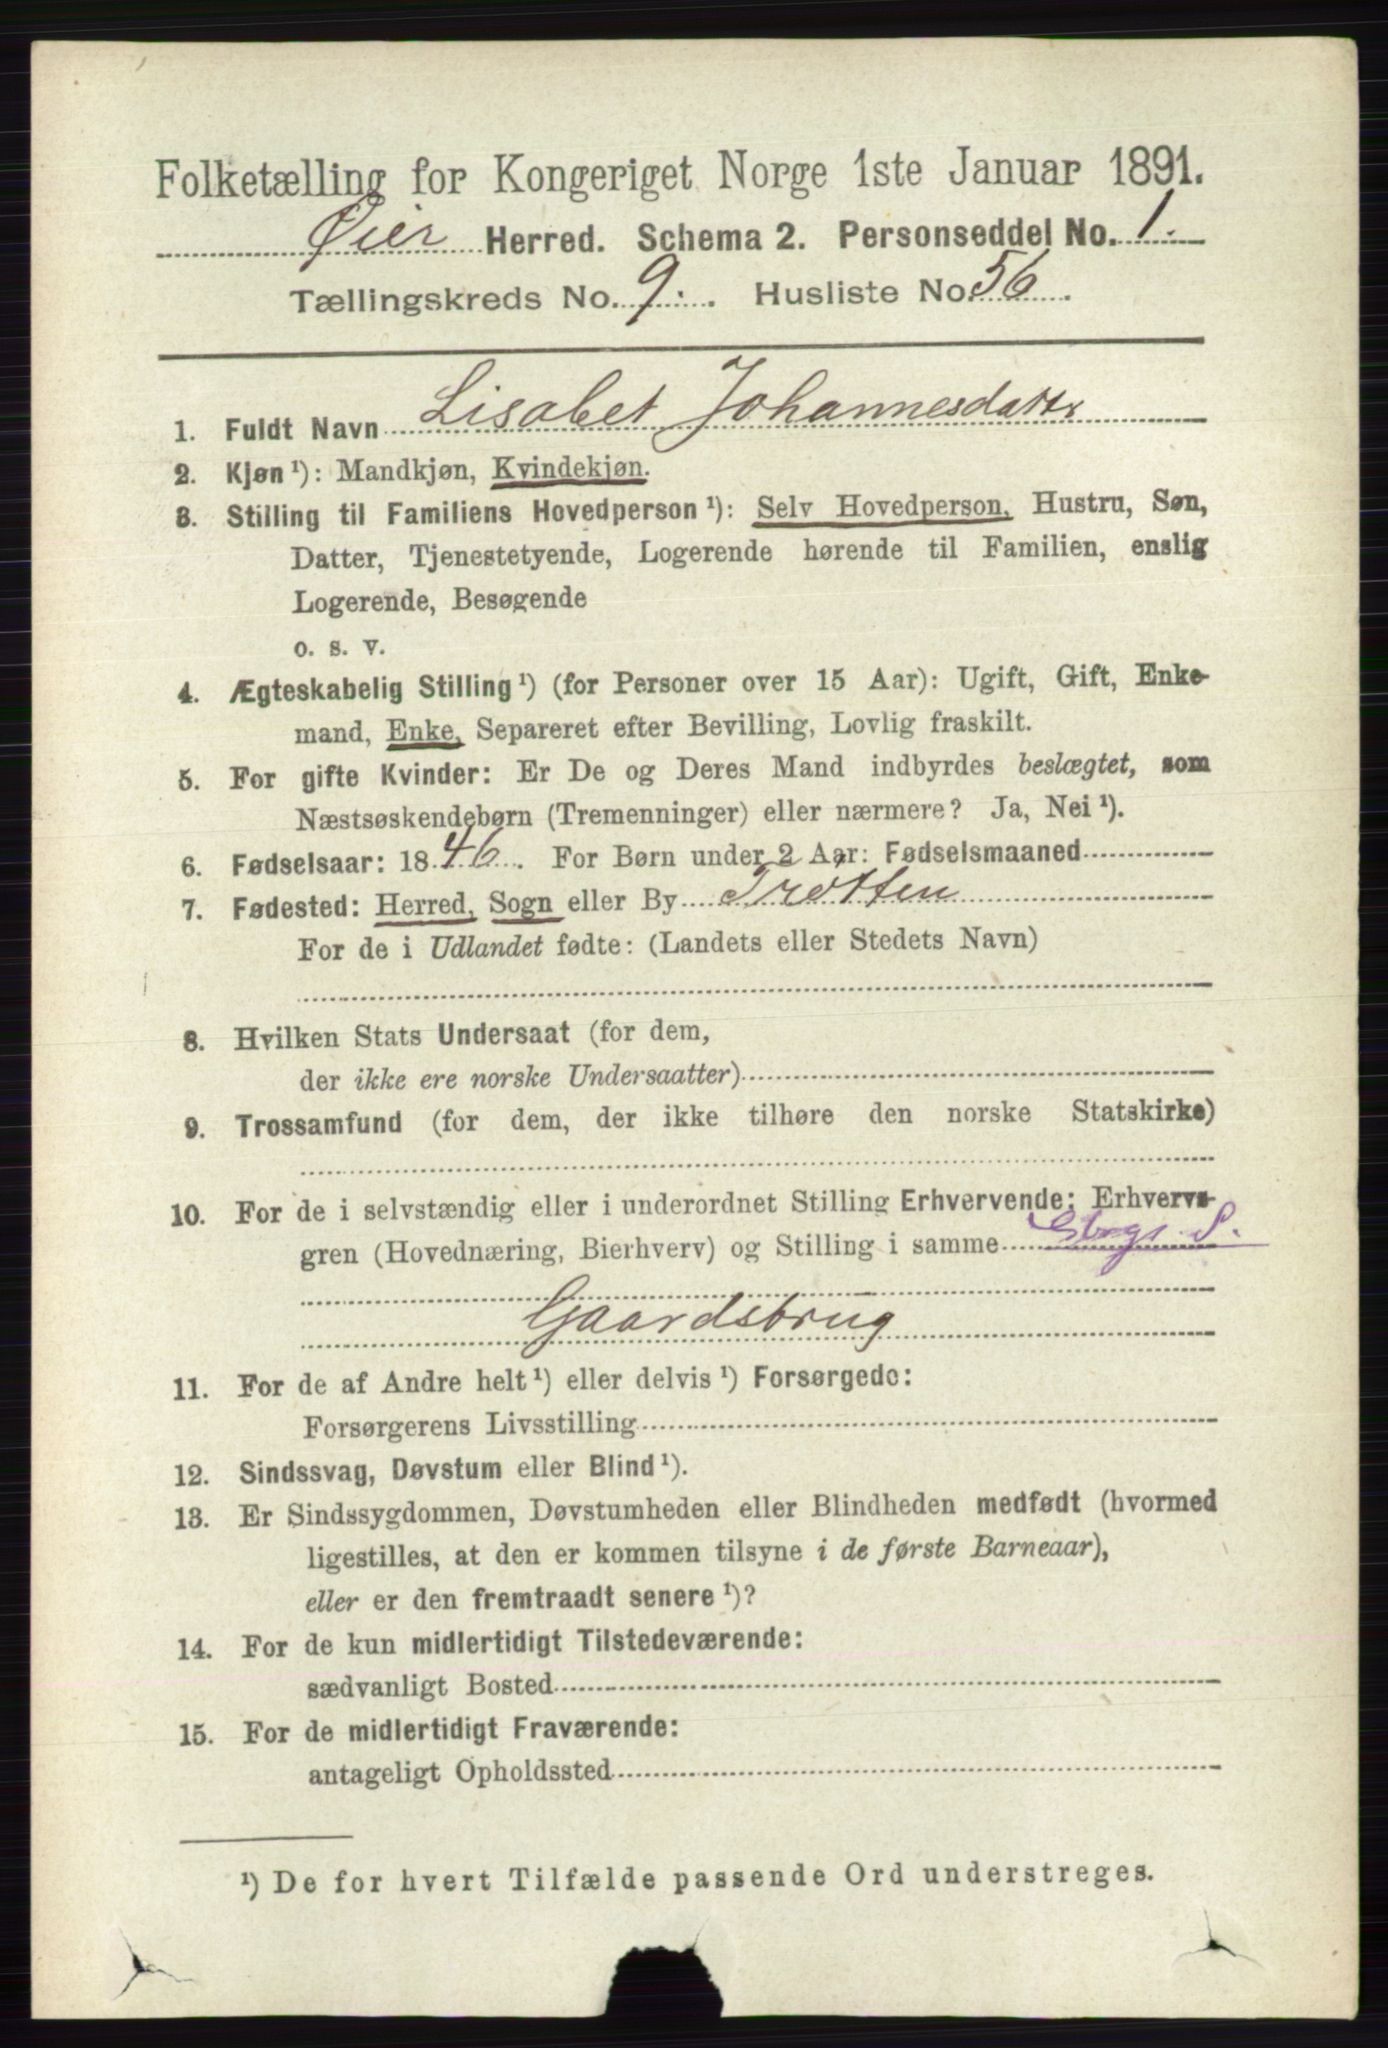 Folketælling for Kongeriget Norge 1ste Januar 1891.
Øier Herred. Schema 2. Personseddel No. 1.
Tællingskreds No. 9. Husliste No. 56.
1. Fuldt Navn Lisabet Johannesdatter
2. Kjøn ¹): Mandkjøn, Kvindekjøn.
3. Stilling til Familiens Hovedperson ¹): Selv Hovedperson, Hustru, Søn,
Datter, Tjenestetyende, Logerende hørende til Familien, enslig
Logerende, Besøgende
o. s. v.
4. Ægteskabelig Stilling ¹) (for Personer over 15 Aar): Ugift, Gift, Enke-
mand, Enke, Separeret efter Bevilling, Lovlig fraskilt.
5. For gifte Kvinder: Er De og Deres Mand indbyrdes beslægtet, som
Næstsøskendebørn (Tremenninger) eller nærmere? Ja, Nei ¹).
6. Fødselsaar: 1846. For Børn under 2 Aar: Fødselsmaaned
7. Fødested: Herred, Sogn eller By Trøtten
For de i Udlandet fødte: (Landets eller Stedets Navn)
8. Hvilken Stats Undersaat (for dem,
der ikke ere norske Undersaatter)
9. Trossamfund (for dem, der ikke tilhøre den norske Statskirke)
10. For de i selvstændig eller i underordnet Stilling Erhvervende: Erhvervs-
gren (Hovednæring, Bierhverv) og Stilling i samme S.
Gaardsbrug
11. For de af Andre helt ¹) eller delvis ¹) Forsørgede:
Forsørgerens Livsstilling
12. Sindssvag, Døvstum eller Blind ¹).
13. Er Sindssygdommen, Døvstumheden eller Blindheden medfødt (hvormed
ligestilles, at den er kommen tilsyne i de første Barneaar),
eller er den fremtraadt senere ¹)?
14. For de kun midlertidigt Tilstedeværende:
sædvanligt Bosted
15. For de midlertidigt Fraværende:
antageligt Opholdssted
¹) De for hvert Tilfælde passende Ord understreges.